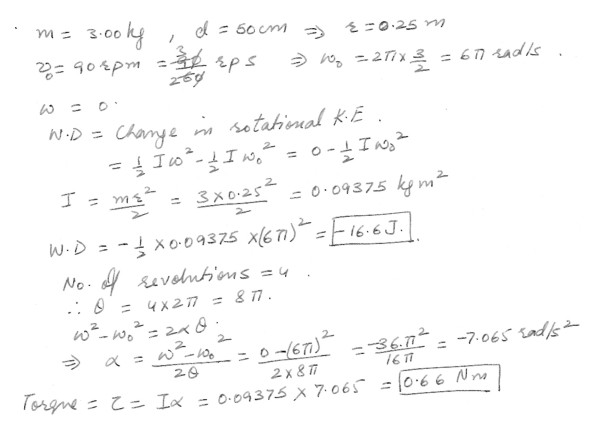 m = 3.00 kg , d = 50cm ⇒ r = 0.25 m
ν₀ = 90 rpm = 3 90/2 60 rps ⇒ ω₀ = 2π × 3/2 = 6π rad/s .
ω = 0 .
W.D = Change in rotational K.E .
= 1/2 Iω² - 1/2 Iω₀² = 0 - 1/2 Iω₀²
I = mr²/2 = 3×0.25²/2 = 0.09375 kg m²
W.D = - 1/2 × 0.09375 × (6π)² = -16.6 J. .
No. of revolutions = 4 .
∴ θ = 4×2π = 8π .
ω² - ω₀² = 2αθ .
⇒ α = ω² - ω₀²/2θ = 0 - (6π)²/2×8π = -36.π²/16π = -7.065 rad/s²
Torque = τ = Iα = 0.09375 × 7.065 = 0.66 Nm